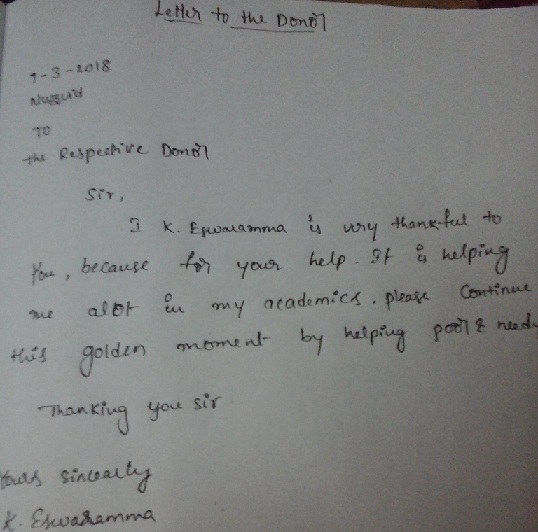 Letter to the Donor
7-3-2018
Nuzvid
To
the Respective Donor
Sir,
I K. Eswaramma is very thankful to
You, because for your help. It is helping
me alot in my academics. please Continue
this golden moment by helping poor & needy
Thanking you sir
Yours sincearly
K. Eswaramma